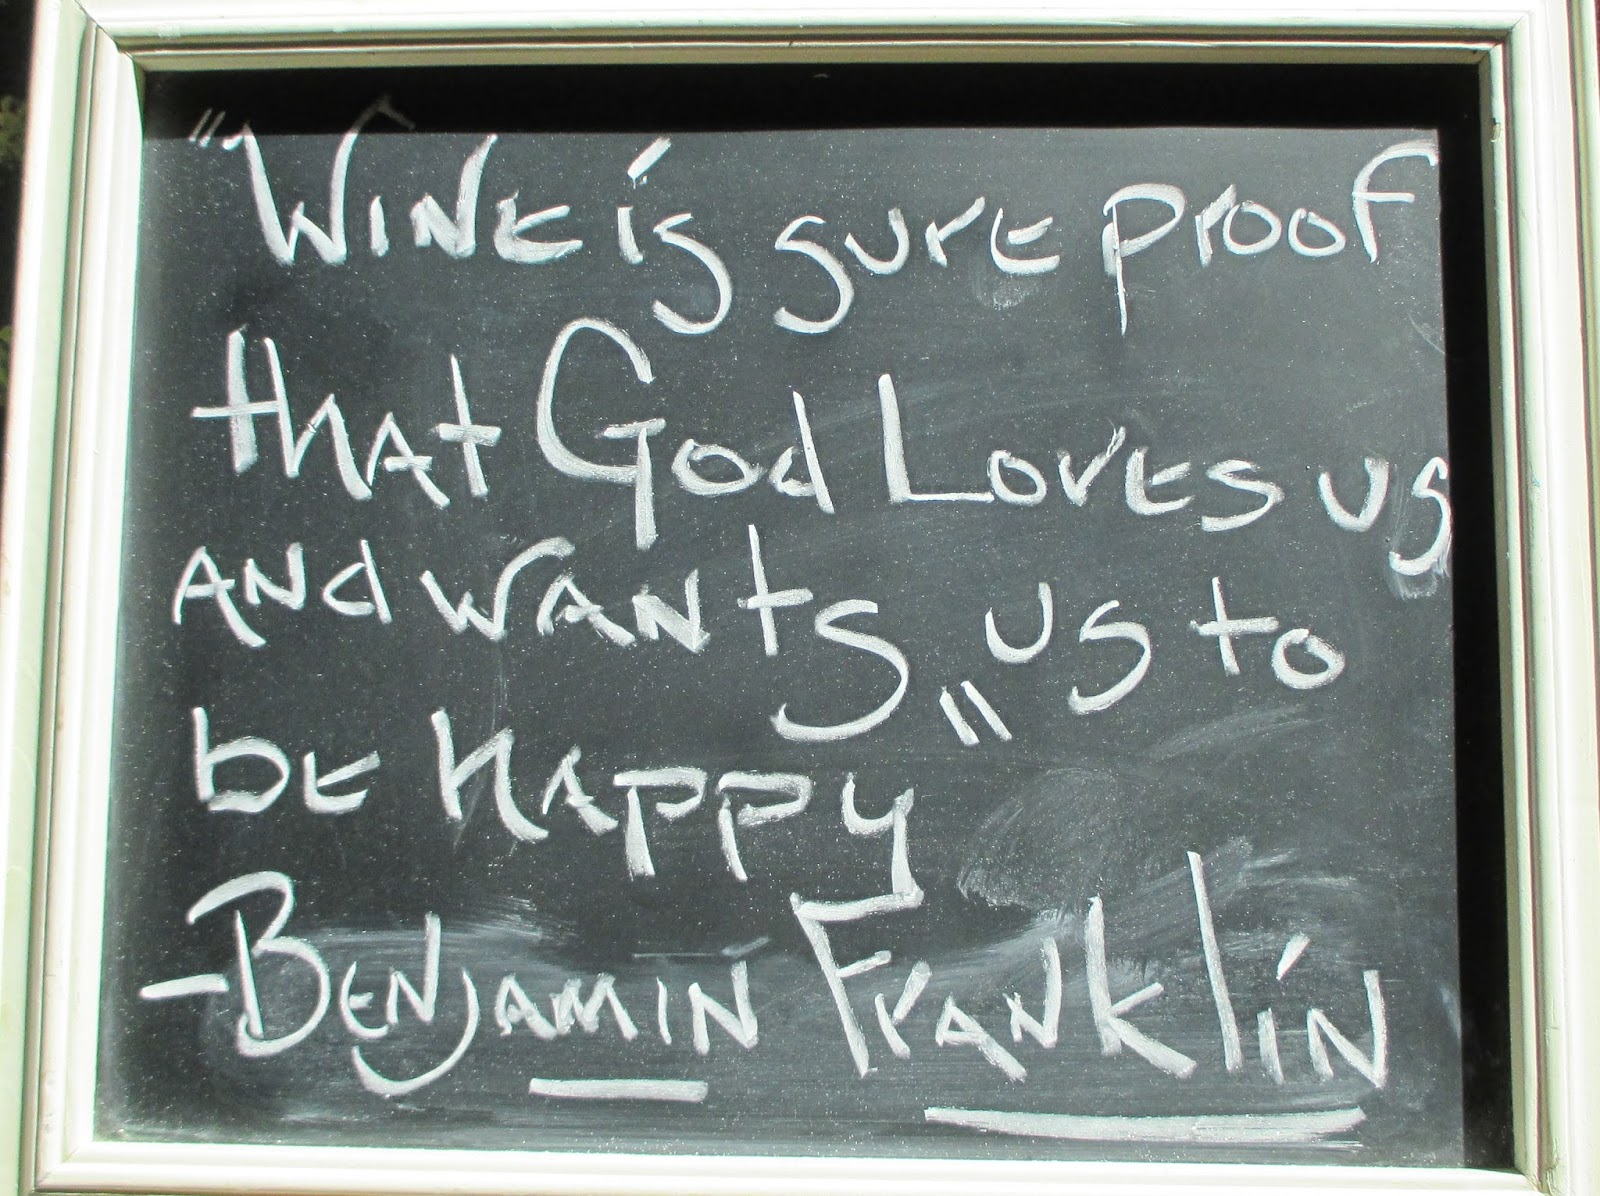 "Wine is sure proof
that God Loves us
and wants us to
be happy"
-Benjamin Franklin